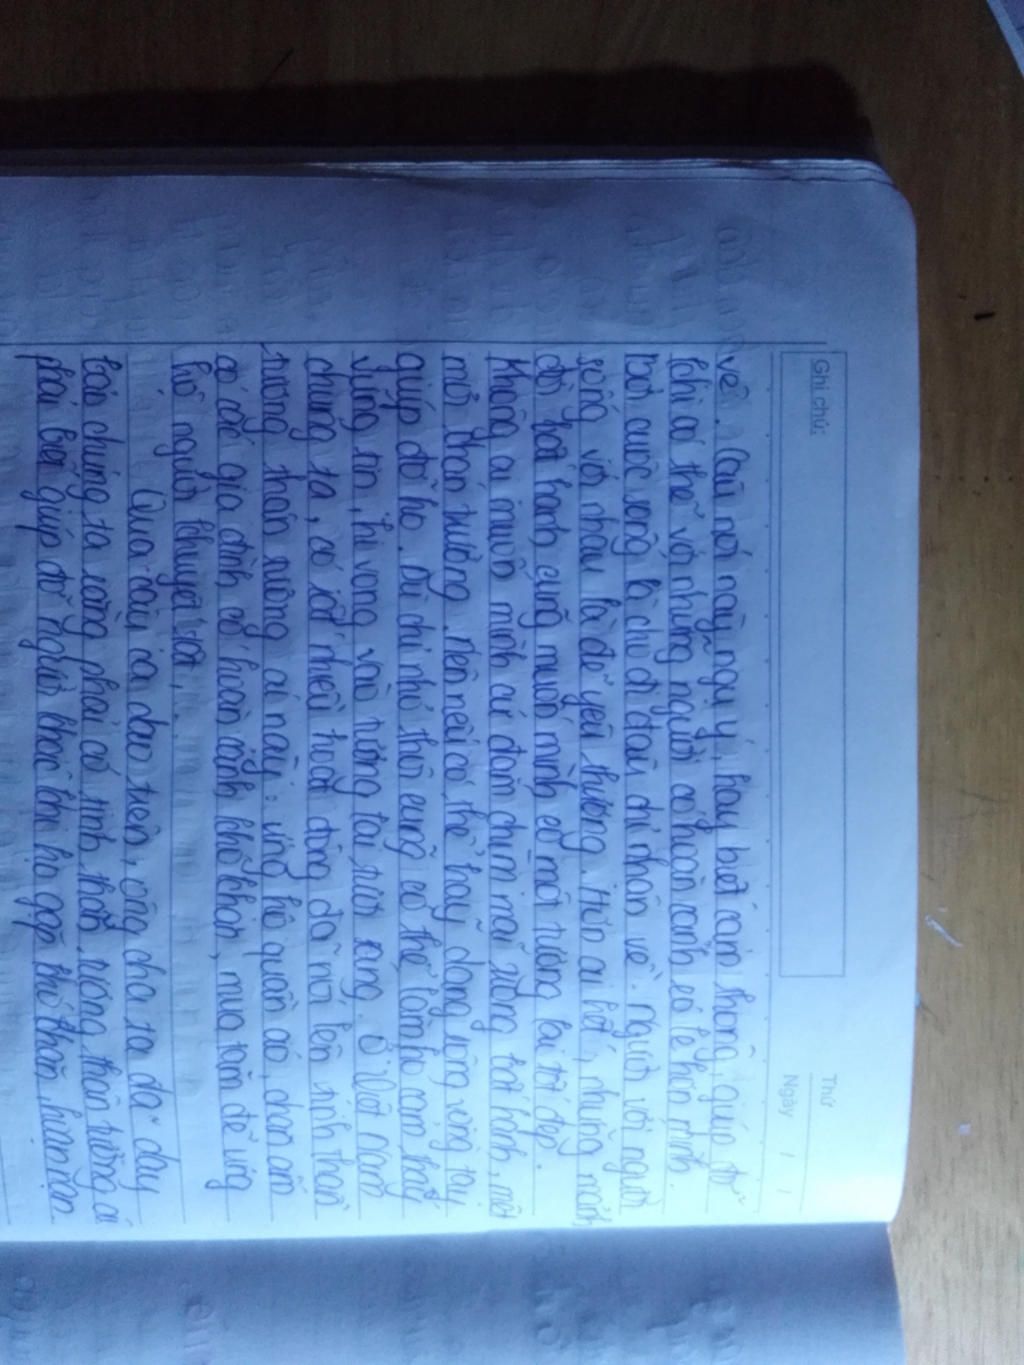 Ghi chú:
Thứ
Ngày / /
về. Câu nói này ngụ ý, hãy biết cảm thông, giúp đỡ
khi có thể với những người có hoàn cảnh éo le hơn mình.
Bởi cuộc sống là cho đi đâu chỉ nhận về. Người với người
sống với nhau là để yêu thương. Hơn ai hết, những mảnh
đời bất hạnh cũng muốn mình có một tương lai tốt đẹp.
Không ai muốn mình cứ đắm chìm mãi trong bất hạnh, một
mỏi thân tương. Nên nếu có thể hãy dang rộng vòng tay
giúp đỡ họ. Dù chỉ nhỏ thôi cũng có thể làm họ cảm thấy
vững tin, hi vọng vào tương lai tươi sáng. Ở Việt Nam
chúng ta, có rất nhiều hoạt động đã nói lên tinh thần
tương thân tương ái này: ủng hộ quần áo, chăn ấm
có các gia đình có hoàn cảnh khó khăn, mua tăm để ủng
hộ người khuyết tật,...
Qua câu ca dao trên, ông cha ta đã dạy
bản chúng ta rằng phải có tinh thần tương thân tương ái
phải biết giúp đỡ người khác khi họ gặp khó khăn, hoạn nạn.